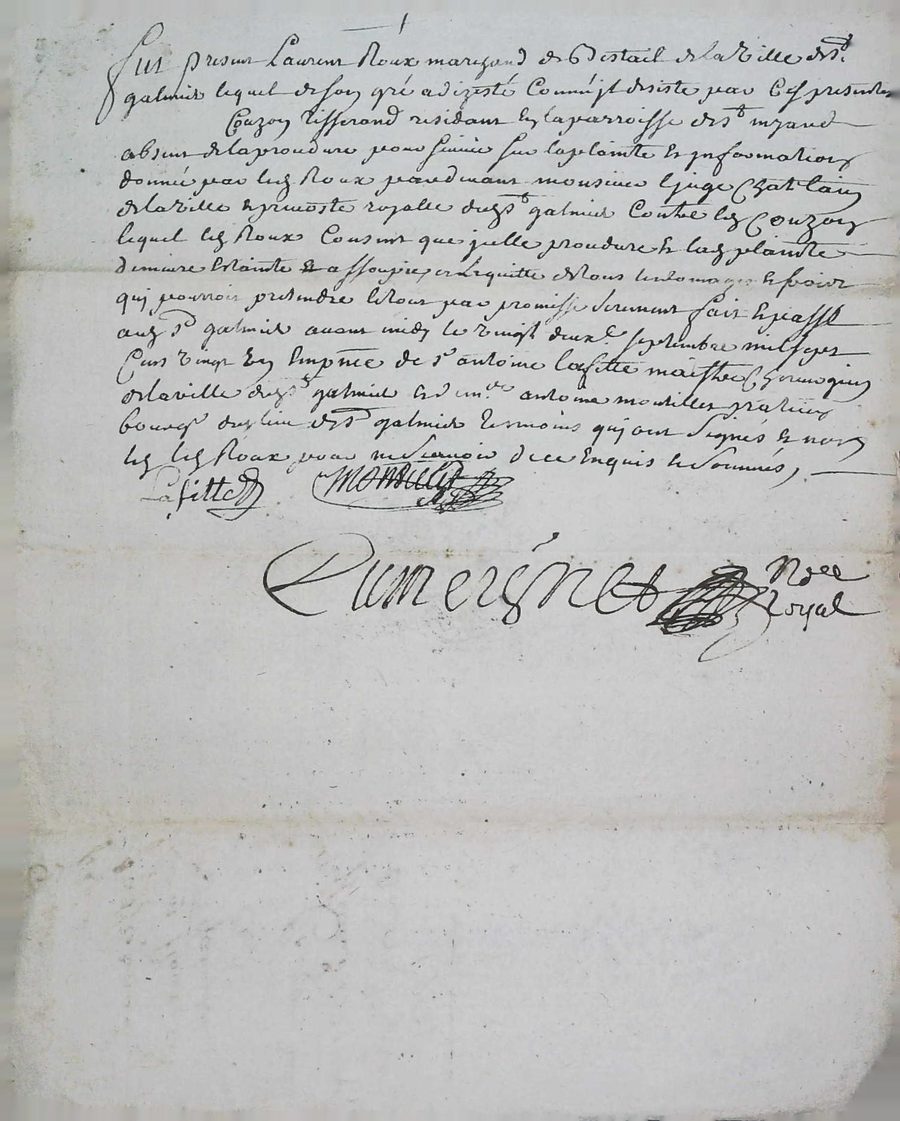 fut present Laurent Roux marchand de Bestail de la Ville de st
galmier lequel de son gré a dizesté comme il desiste par ces presentes
Couzon tisserand residant en la parroisse de st
absent de la procedure poursuivie sur la plainte et information
donnée par led Roux pardevant monsieur le juge Chatelain
de la Ville et prevosté royalle dud st galmier contre led Couzon
lequel led Roux consent que icelle procedure et lad plainte
demeure etainte et assoupie et le quitte de tous les domages et
qu'il pourroit pretendre le tout par promisse serment fait et passé
aud st galmier avant midy le vingt deux.e septembre mil sept
cens vingt en presence de sr antoine Lafitte maistre
de la ville dud st galmier et d antoine
bourg. dud lieu de st galmier temoins qui ont signés et non
led Roux pour ne scavoir de ce enquis et sommés,
Lafitte
Royal